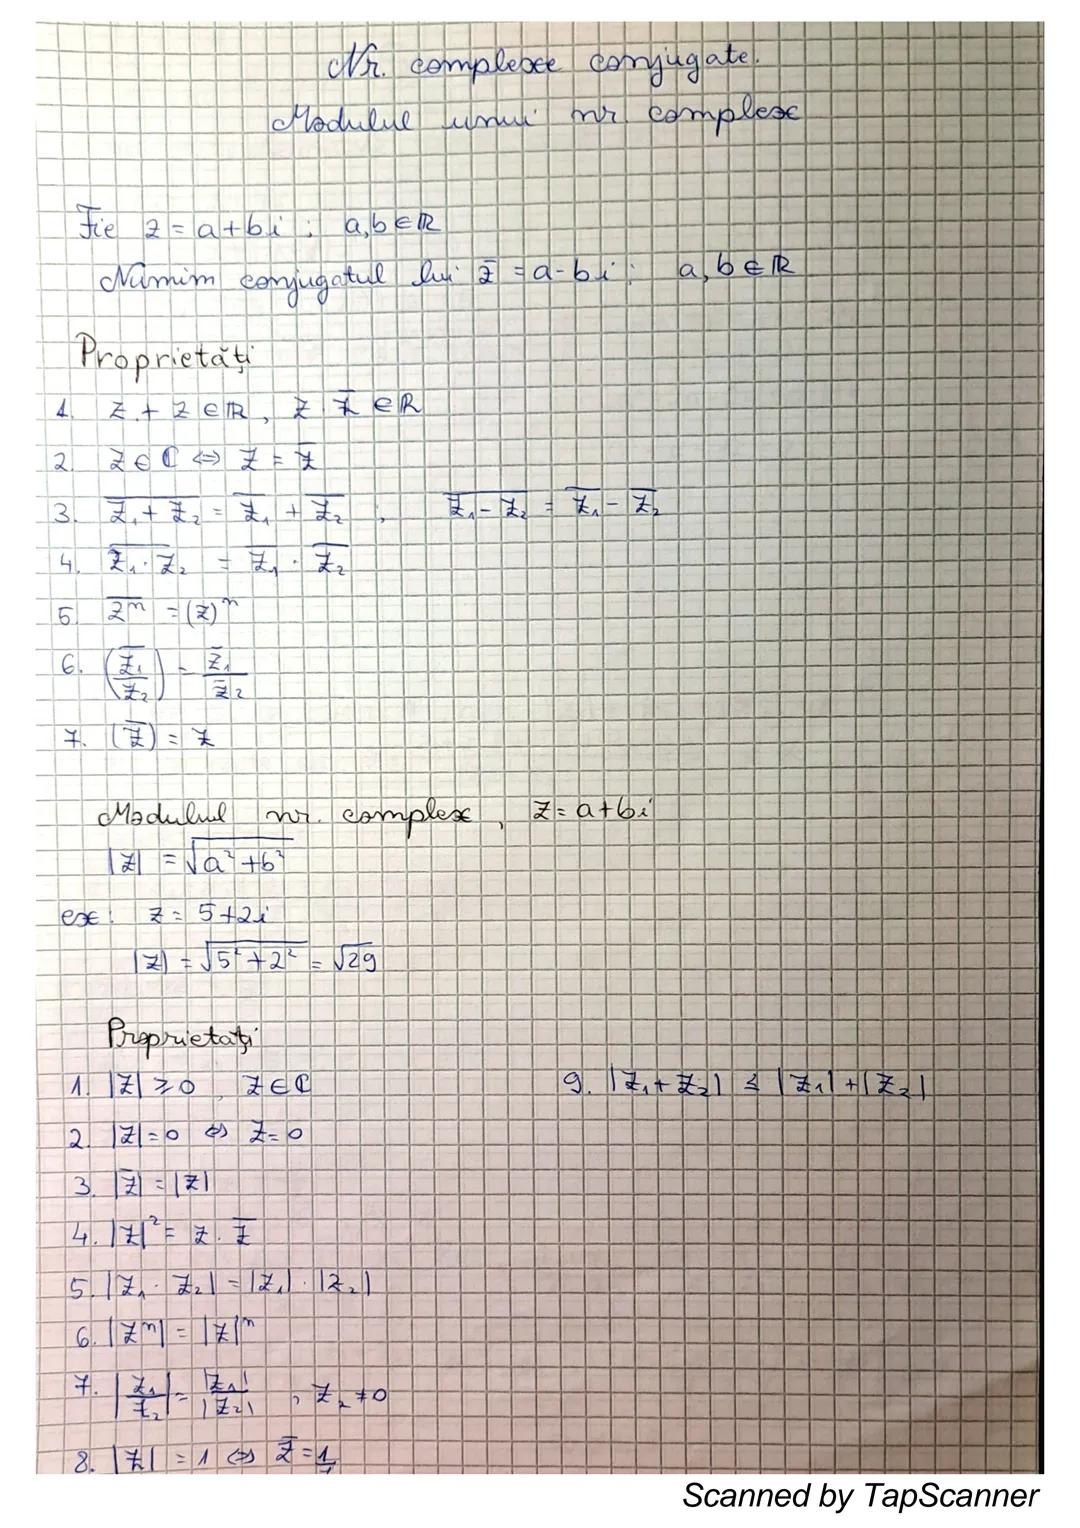 Nr. complexe conjugate.
Modulul unui nr. complex
Fie z = a+bi ; a,b ∈ ℝ
Numim conjugatul lui z̄ = a-bi ; a, b ∈ ℝ
Proprietăți
1. z + z ∈ ℝ, z z̄ ∈ ℝ
2. z ∈ ℂ ⇔ z = z̄
3. \overline{z₁ + z₂} = \overline{z₁} + \overline{z₂} ; \overline{z₁ - z₂} = \overline{z₁} - \overline{z₂}
4. \overline{z₁ · z₂} = \overline{z₁} · \overline{z₂}
5. \overline{zⁿ} = (z)ⁿ
6. (\overline{z₁}/z₂) = z̄₁/z̄₂
7. (z̄) = z
Modulul nr. complex, z = a+bi
|z| = √(a²+b²)
ex: z = 5+2i
|z| = √(5²+2²) = √29
Proprietăți
1. |z| ≥ 0, z ∈ ℂ
2. |z| = 0 ⇔ z = 0
3. |z̄| = |z|
4. |z|² = z · z̄
5. |z₁ · z₂| = |z₁| · |z₂|
6. |zⁿ| = |z|ⁿ
7. |z₁/z₂| = |z₁|/|z₂|, z₂ ≠ 0
8. |z| = 1 ⇔ z̄ = 1/
9. |z₁ + z₂| ≤ |z₁| + |z₂|
Scanned by TapScanner